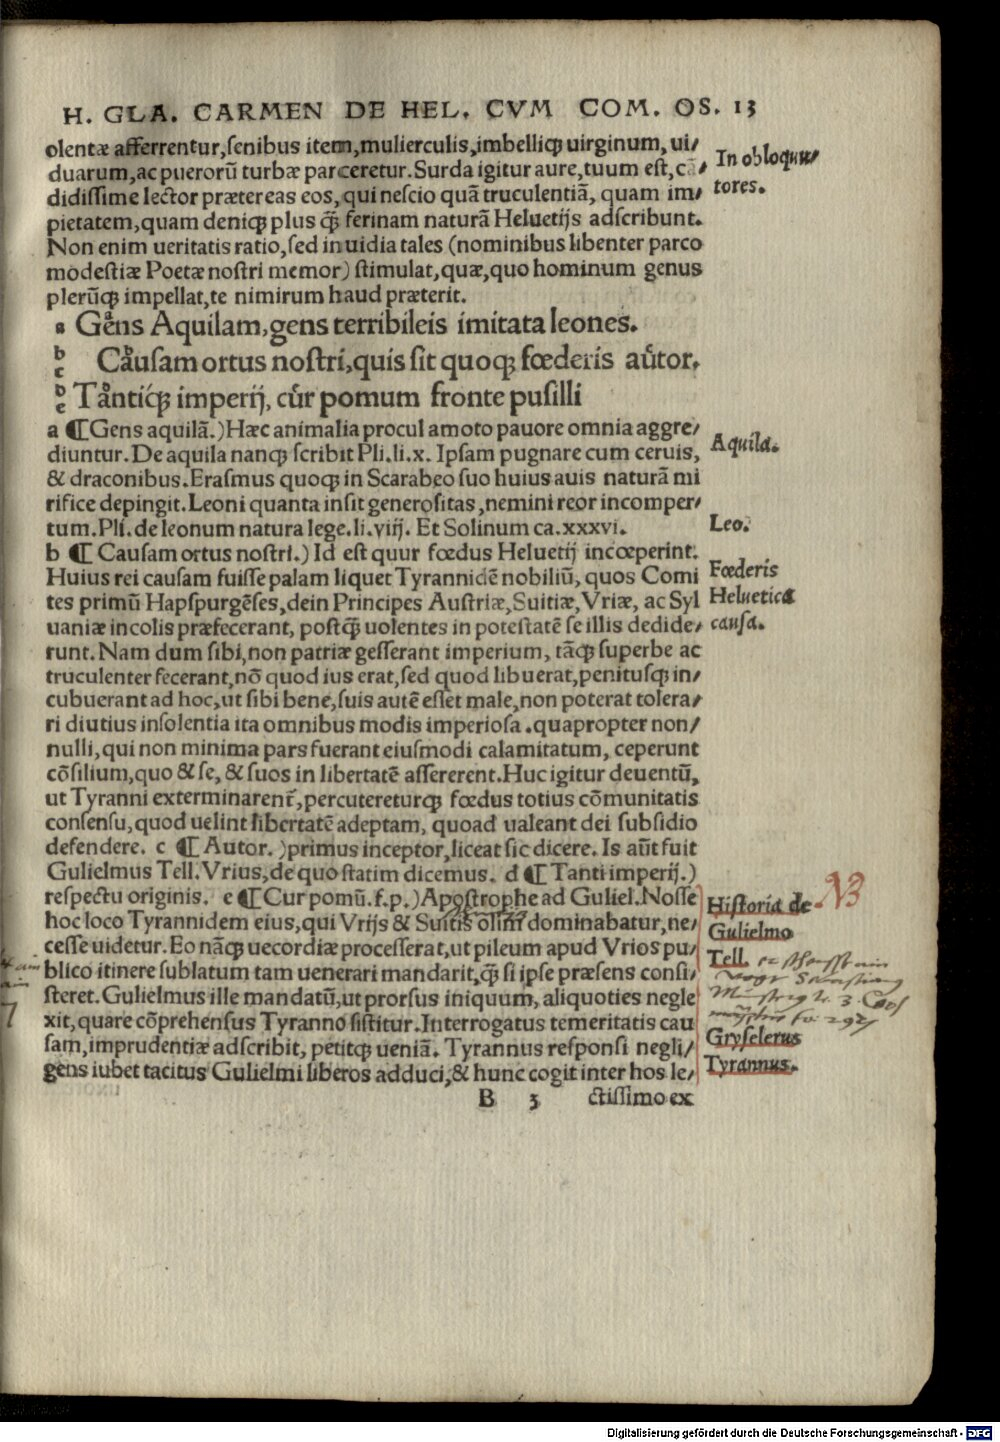 H. GLA. CARMEN DE HEL. CVM COM. OS. 13
olentæ afferrentur, senibus item, mulierculis, imbelliq́ꝫ uirginum, ui/
duarum, ac puerorū turbæ parceretur. Surda igitur aure, tuum est, cā/
didissime lector prætereas eos, qui nescio quā truculentiā, quam im/
pietatem, quam deniqꝫ plus q̄ꝫ ferinam naturā Heluetijs adscribunt.
Non enim ueritatis ratio, sed inuidia tales (nominibus libenter parco
modestiæ Poetæ nostri memor) stimulat, quæ, quo hominum genus
plerūqꝫ impellat, te nimirum haud præterit.
In obloquu/
tores.
a Gens Aquilam, gens terribileis imitata leones.
b
c Causam ortus nostri, quis sit quoqꝫ fœderis autor.
d
e Tantiq́ꝫ imperij, cur pomum fronte pusilli
a ¶ Gens aquilā.) Hæc animalia procul amoto pauore omnia aggre/
diuntur. De aquila nanqꝫ scribit Pli. li. x. Ipsam pugnare cum ceruis,
& draconibus. Erasmus quoqꝫ in Scarabeo suo huius auis naturā mi
rifice depingit. Leoni quanta insit generositas, nemini reor incomper/
tum. Pli. de leonum natura lege. li. viij. Et Solinum ca. xxxvi.
Aquila.
Leo.
b ¶ Causam ortus nostri.) Id est quur fœdus Heluetij incœperint.
Huius rei causam fuisse palam liquet Tyrannidē nobiliū, quos Comi
tes primū Hapspurgēses, dein Principes Austriæ, Suitiæ, Vriæ, ac Syl
uaniæ incolis præfecerant, postq̄ꝫ uolentes in potestatē se illis dedide/
runt. Nam dum sibi, non patriæ gesserant imperium, tāqꝫ superbe ac
truculenter fecerant, nō quod ius erat, sed quod libuerat, penitusqꝫ in/
cubuerant ad hoc, ut sibi bene, suis autē esset male, non poterat tolera/
ri diutius insolentia ita omnibus modis imperiosa. quapropter non/
nulli, qui non minima pars fuerant eiusmodi calamitatum, ceperunt
cōsilium, quo & se, & suos in libertatē assererent. Huc igitur deuentū,
ut Tyranni exterminarent̄, percutereturqꝫ fœdus totius cōmunitatis
consensu, quod uelint libertatē adeptam, quoad ualeant dei subsidio
defendere. c ¶ Autor.) primus inceptor, liceat sic dicere. Is aūt fuit
Gulielmus Tell. Vrius, de quo statim dicemus. d ¶ Tanti imperij.)
respectu originis. e ¶ Cur pomū. f. p.) Apostrophe ad Guliel. Nosse
hoc loco Tyrannidem eius, qui Vrijs & Suitis olim dominabatur, ne/
cesse uidetur. Eo nāqꝫ uecordiæ processerat, ut pileum apud Vrios pu/
blico itinere sublatum tam uenerari mandarit, q̄ꝫ si ipse præsens consi/
steret. Gulielmus ille mandatū, ut prorsus iniquum, aliquoties negle
xit, quare cōprehensus Tyranno sistitur. Interrogatus temeritatis cau
sam, imprudentiæ adscribit, petitqꝫ ueniā. Tyrannus responsi negli/
gens iubet tacitus Gulielmi liberos adduci, & hunc cogit inter hos le/
Fœderis
Heluetica
causa.
NB
Historia de
Gulielmo
Tell.
Gryselerus
Tyrannus.
B 3 ctissimo ex
Digitalisierung gefördert durch die Deutsche Forschungsgemeinschaft - DFG